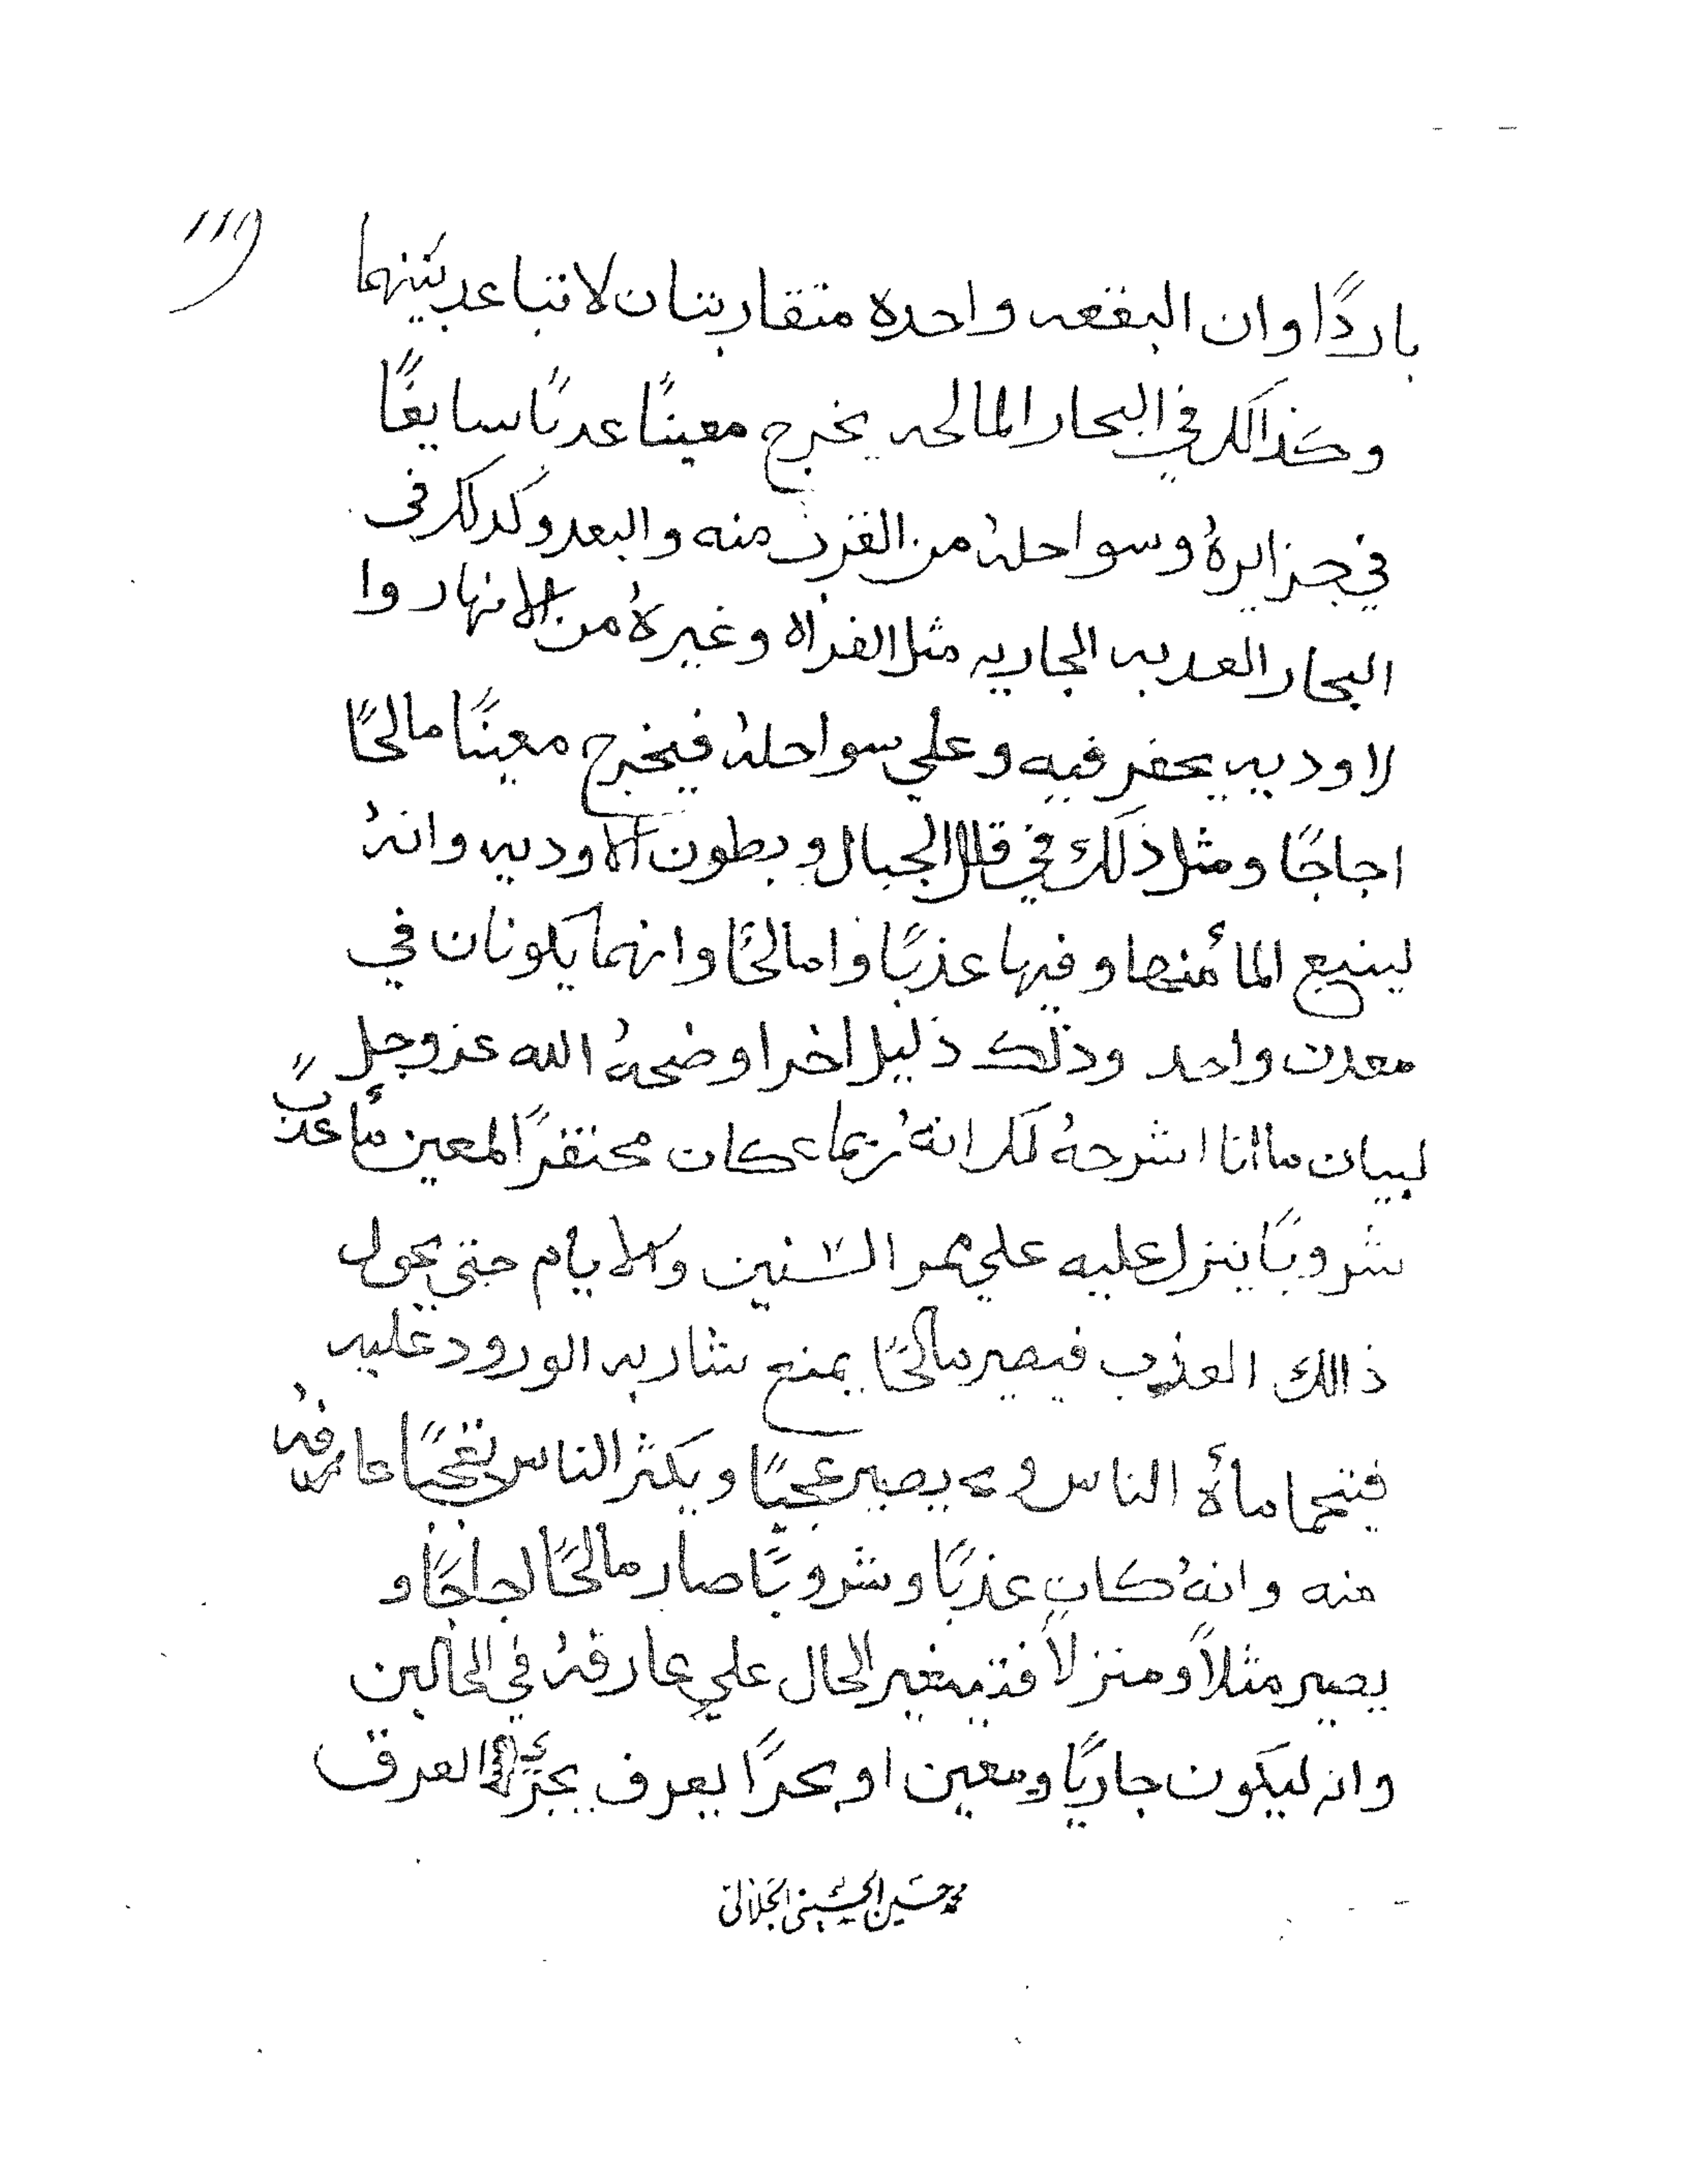 ١١٩
باردًا وان البقعه واحده متقاربتان لا تتباعد بينهما
وكذالك في البحار المالحه يخرج معينًا عدبًا سايغًا
في جزايرهُ وسواحلهُ من القرب منه والبعد وكدلك في
البحار العدبه الجاريه مثل الفراه وغيرهُ من الانهار وا
لاوديه يحفر فيه وعلي سواحلهُ فيخرج معينًا مالحًا
اجاجًا ومثل ذلك في قلل الجبال وبطون الاوديه وانهُ
لينبع المأ منها وفيها عذبًا وامالحًا وانهما يكونان في
معدن واحد وذلك دليل اخر اوضحهُ الله عز وجل
لبيان ما انا اشرحهُ لك انهُ ربما كان محتقرًا لمعين مأ عذبًا
شروبًا ينزل عليه علي ممر السنين والايام حتي يحول
ذالك العذب فيصير مالحًا يمنع شاربه الورود عليه
فيتحما مأهُ الناس و يصير عجبًا ويكثر الناس تعجبًا عارفهُ
منه وانهُ كان عذبًا وشروبًا صار مالحًا اجاجًا و
يصير مثلاً ومنزلاً فتيتغير الحال علي عارفهُ في الحالين
وانه ليكون جاريًا ومعين او بحرًا يعرف العرق
محمد حسين الحسيني الجلالي